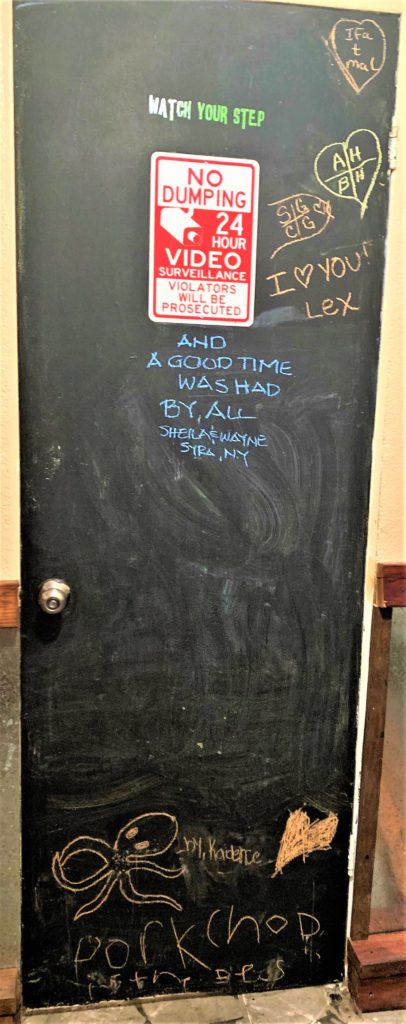 IFa
t
mal
WATCH YOUR STEP
A H
B H
NO
DUMPING
24
HOUR
VIDEO
SURVEILLANCE
VIOLATORS
WILL BE
PROSECUTED
S/G
C/G
I ♡ YOU!
Lex
AND
A GOOD TIME
WAS HAD
BY, ALL
SHEILA & WAYNE
SYRA, NY
by, Kadence
porkchop
is the